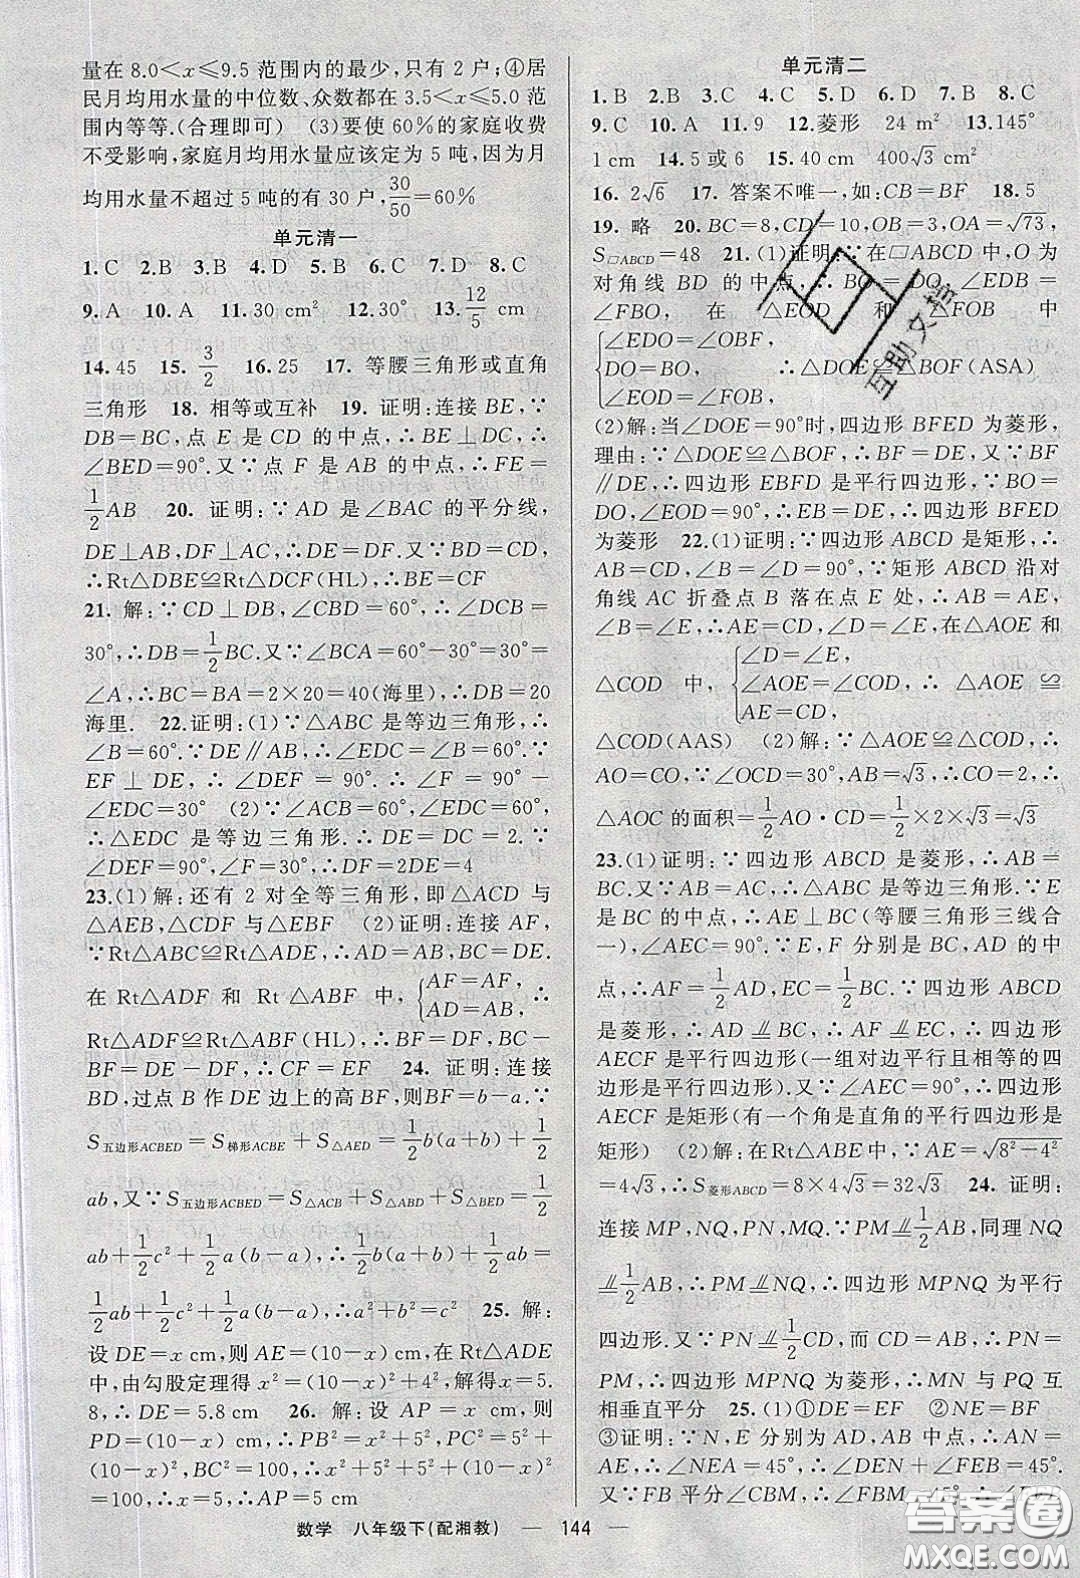 量在 8.0＜x≤9.5 范围内的最少,只有 2 户;④居
民月均用水量的中位数、众数都在 3.5＜x≤5.0 范
围内等等.(合理即可) (3)要使 60%的家庭收费
不受影响,家庭月均用水量应该定为 5 吨,因为月
均用水量不超过 5 吨的有 30 户,30/50＝60%
单元清一
1.C 2.B 3.B 4.D 5.B 6.C 7.D 8.C
9.A 10.A 11.30 cm² 12.30° 13.12/5 cm
14.45 15.3/2 16.25 17. 等腰三角形或直角
三角形 18. 相等或互补 19. 证明:连接 BE,∵
DB＝BC,点 E 是 CD 的中点,∴BE⊥DC,∴
∠BED＝90°.又∵点 F 是 AB 的中点,∴FE＝
1/2AB 20. 证明:∵AD 是∠BAC 的平分线,
DE⊥AB,DF⊥AC,∴DE＝DF,又∵BD＝CD,
∴Rt△DBE≌Rt△DCF(HL),∴BE＝CF
21. 解:∵CD⊥DB,∠CBD＝60°,∴∠BCD＝
30°,∴DB＝1/2BC.又∵∠BCA＝60°－30°＝30°＝
∠A,∴BC＝BA＝2×20＝40(海里),∴DB＝20
海里. 22.证明:(1)∵△ABC 是等边三角形,∴
∠B＝60°.∵DE∥AB,∴∠EDC＝∠B＝60°.∵
EF⊥DE,∴∠DEF＝90°.∴∠F＝90°－
∠EDC＝30° (2)∵∠ACB＝60°,∠EDC＝60°,
∴△EDC 是等边三角形.∴DE＝DC＝2.∵
∠DEF＝90°,∠F＝30°,∴DF＝2DE＝4
23.(1)解:还有 2 对全等三角形,即△ACD 与
△AEB,△CDF 与△EBF (2)证明:连接 AF,
∵Rt△ABC≌Rt△ADE,∴AD＝AB,BC＝DE.
在 Rt△ADF 和 Rt△ABF 中,{AF＝AF, AD＝AB, ∴
Rt△ADF≌Rt△ABF(HL),∴BF＝DF,∴BC－
BF＝DE－DF,∴CF＝EF 24. 证明:连接
BD,过点 B 作 DE 边上的高 BF,则BF＝b－a.∵
S五边形ACBED＝S梯形ACBE＋S△AED＝1/2b(a＋b)＋1/2
ab,又∵S五边形ACBED＝S△ACB＋S△ABD＋S△BED＝1/2
ab＋1/2c²＋1/2a(b－a),∴1/2b(a＋b)＋1/2ab＝
1/2ab＋1/2c²＋1/2a(b－a),∴a²＋b²＝c² 25. 解:
设 DE＝x cm,则 AE＝(10－x) cm,在 Rt△ADE
中,由勾股定理得 x²＝(10－x)²＋4²,解得 x＝5.
8,∴DE＝5.8 cm 26. 解:设 AP＝x cm,则
PD＝(10－x) cm,∴PB²＝x²＋5²,PC²＝5²＋
(10－x)²,BC²＝100,∴x²＋5²＋5²＋(10－x)²
＝100,∴x＝5,∴AP＝5 cm
单元清二
1.B 2.B 3.C 4.C 5.D 6.D 7.B 8.C
9.C 10.A 11.9 12.菱形 24 m² 13.145°
1 cm 14.5 或 6 15.40 cm 400√3 cm²
16. 2√6 17. 答案不唯一,如:CB＝BF 18.5
19. 略 20. BC＝8,CD＝10,OB＝3,OA＝√73,
S▱ABCD＝48 21. (1)证明:∵在▱ABCD 中,O 为
对角线 BD 的中点,∴BO＝DO,∠EDB＝
∠FBO,在△EOD 和△FOB 中
{∠EDO＝∠OBF,
DO＝BO, ∴△DOE≌△BOF(ASA)
∠EOD＝∠FOB,
(2)解:当∠DOE＝90°时,四边形 BFED 为菱形,
理由:∵△DOE≌△BOF,∴BF＝DE,又∵BF
∥DE,∴四边形 EBFD 是平行四边形,∵BO＝
DO,∠EOD＝90°,∴EB＝DE,∴四边形 BFED
为菱形 22.(1)证明:∵四边形 ABCD 是矩形,∴
AB＝CD,∠B＝∠D＝90°,∵矩形 ABCD 沿对
角线 AC 折叠点 B 落在点 E 处,∴AB＝AE,
∠B＝∠E,∴AE＝CD,∠D＝∠E,在△AOE 和
△COD 中,{∠D＝∠E,
∠AOE＝∠COD, ∴△AOE≌
AE＝CD,
△COD(AAS) (2)解:∵△AOE≌△COD,∴
AO＝CO.∵∠OCD＝30°,AB＝√3,∴CO＝2,∴
△AOC 的面积＝1/2AO·CD＝1/2×2×√3＝√3
23.(1)证明:∵四边形 ABCD 是菱形,∴AB＝
BC.又∵AB＝AC,∴△ABC 是等边三角形.∵E
是 BC 的中点,∴AE⊥BC(等腰三角形三线合
一),∠AEC＝90°.∵E,F 分别是 BC,AD 的中
点,∴AF＝1/2AD,EC＝1/2BC.∵四边形 ABCD
是菱形,∴AD⫽BC,∴AF⫽EC,∴四边形
AECF 是平行四边形(一组对边平行且相等的四
边形是平行四边形).又∵∠AEC＝90°,∴四边形
AECF 是矩形(有一个角是直角的平行四边形是
矩形) (2)解:在Rt△ABE中,∵AE＝√8²－4²
＝4√3,∴S菱形ABCD＝8×4√3＝32√3 24. 证明:
连接 MP,NQ,PN,MQ.∵PM⫽1/2AB,同理 NQ
⫽1/2AB,∴PM⫽NQ,∴四边形 MPNQ 为平行
四边形.又∵PN⫽1/2CD,而 CD＝AB,∴PN＝
PM,∴四边形 MPNQ 为菱形,∴MN 与 PQ 互
相垂直平分 25.(1)①DE＝EF ②NE＝BF
③证明:∵N,E 分别为 AD,AB 中点,∴AN＝
AE,∴∠NEA＝45°,∴∠DEN＋∠FEB＝45°.
又∵FB 平分∠CBM,∴∠FBM＝45°,
数学 八年级下(配湘教) — 144 —
互助文档
答案圈
MXQE.COM